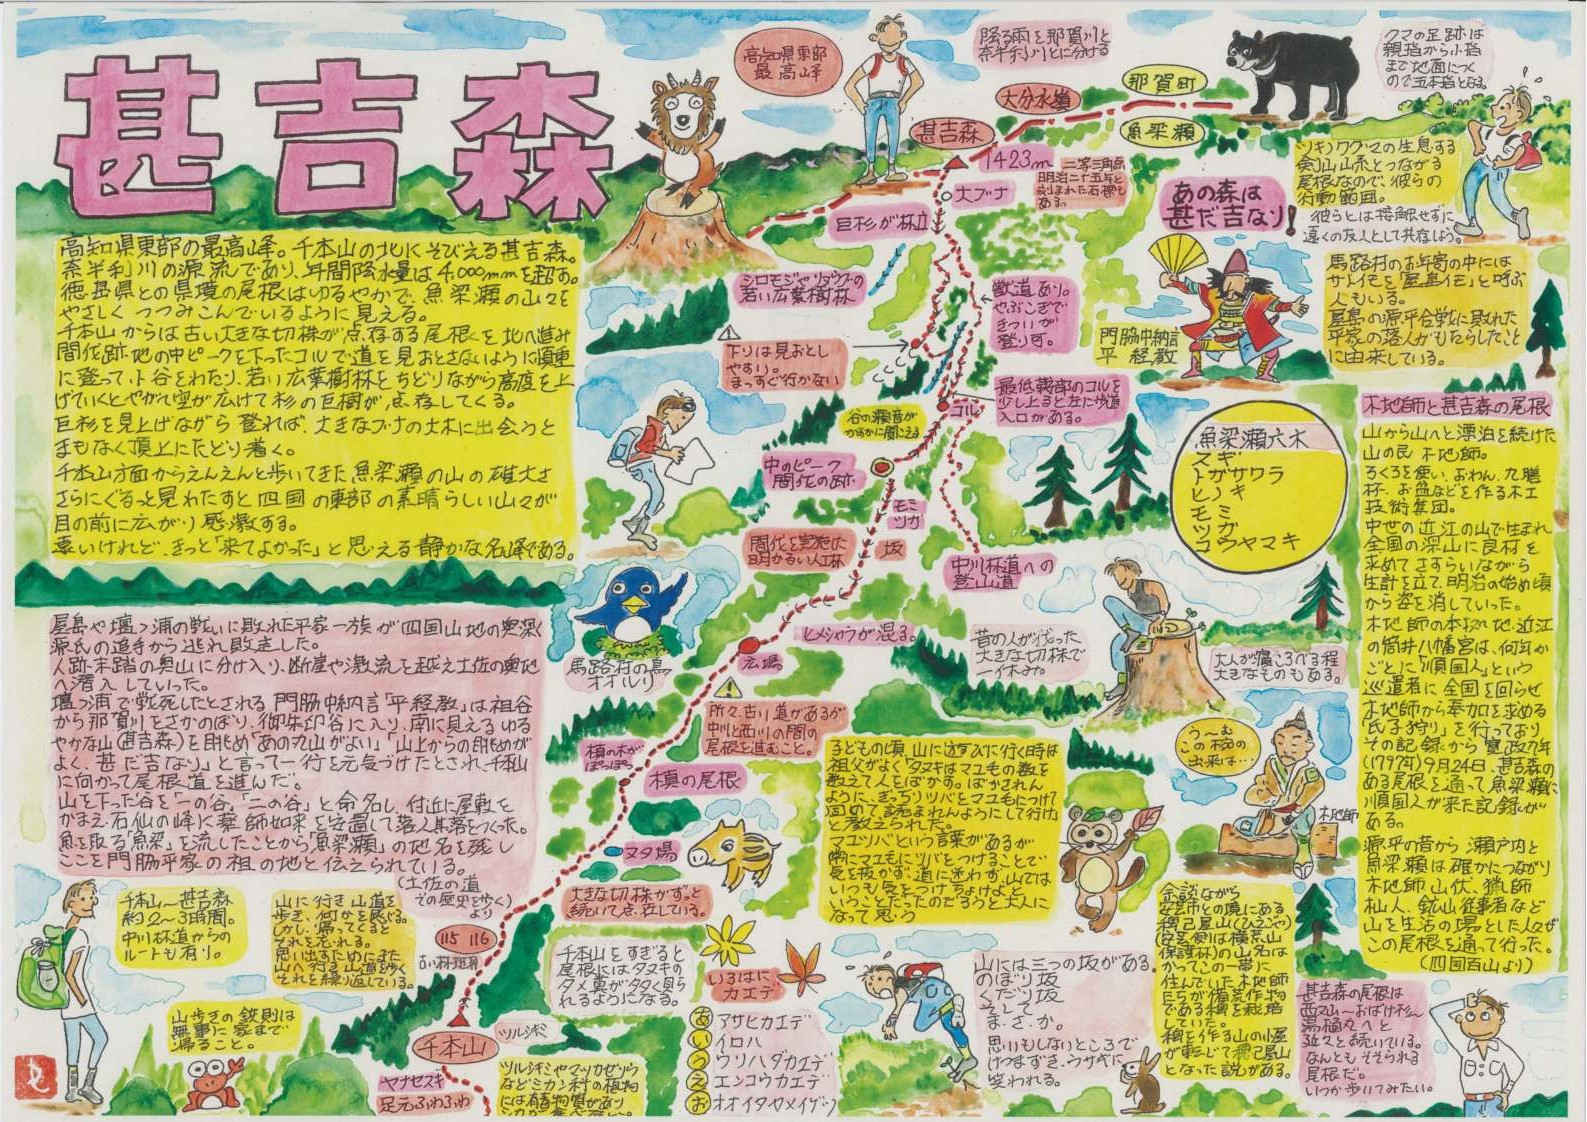 甚吉森
高知県東部の最高峰。千本山の北にそびえる甚吉森。
奈半利川の源流であり、年間降水量は4,000mmを超す。
徳島県との県境の尾根はゆるやかで、魚梁瀬の山々を
やさしくつつみこんでいるように見える。
千本山からは古い大きな切株が点存する尾根を北へ進み
間伐跡地の中ピークを下ったコルで道を見おとさないように慎重
に登って、小谷をわたり、若い広葉樹林をちどりながら高度を上
げていくとやがて空が広けて杉の巨樹が点存してくる。
巨杉を見上げながら登れば、大きなブナの大木に出会うと
まもなく頂上にたどり着く。
千本山方面からえんえんと歩いてきた魚梁瀬の山の雄大さ
さらにぐるっと見わたすと四国の東部の素晴らしい山々が
目の前に広がり感激する。
遠いけれど、きっと「来てよかった」と思える静かな名峰である。
屋島や壇ノ浦の戦いに敗れた平家一族が四国山地の奥深く
源氏の追手から逃れ敗走した。
人跡未踏の奥山に分け入り、断崖や激流を越え土佐の奥地
へ潜入していった。
壇ノ浦で戦死したとされる門脇中納言「平経教」は祖谷
から那賀川をさかのぼり、御朱印谷に入り、南に見えるゆる
やかな山(甚吉森)を眺め「あの丸山がよい」「山上からの眺めが
よく、甚だ吉なり」と言って一行を元気づけたとされ、千本山
に向かって尾根道を進んだ。
山を下った谷を「一の谷」「二の谷」と命名し、付近に屋敷を
かまえ、石仙の峰に薬師如来を安置して落人集落をつくった。
魚を取る「魚梁」を流したことから「魚梁瀬」の地名を残し
ここを門脇平家の祖の地と伝えられている。
(土佐の道
その歴史を歩く)
より
千本山〜甚吉森
約2〜3時間。
中川林道からの
ルートも有り。
山に行き山道を
歩き、何かを感じる。
しかし、帰ってくると
それを忘れる。
思い出すためにまた
山へ行き山道を歩く
それを繰り返している。
山歩きの鉄則は
無事に家まで
帰ること。
高知県東部
最高峰
降る雨を那賀川と
奈半利川とに分ける
大分水嶺
那賀町
魚梁瀬
甚吉森
1423m
二等三角点
明治二十五年と
刻まれた石標も
ある。
大ブナ
巨杉が林立
シロモジやリョウブの
若い広葉樹林
獣道あり。
やぶこぎで
きついが
登り可。
下りは見おとし
やすい。
まっすぐ行かない
最低鞍部のコルを
少し上ると左に歩道
入口がある。
コル
谷の瀬音が
かすかに聞こえる
中のピーク
間伐の跡
モミ
ツガ
間伐を実施した
明かるい人工林
坂
中川林道への
登山道
ヒメシャラが混る。
広場
馬路村の鳥
オオルリ
所々、古い道があるが
中川と西川の間の
尾根を進むこと。
槙の木が
ぽつぽつ
槙の尾根
ヌタ場
大きな切株がずっと
続いて点在している。
115 116
古い林班界
千本山をすぎると
尾根にはタヌキの
タメ糞が多く見ら
れるようになる。
千本山
ツルシキミ
ヤナセスギ
足元ふわふわ
ツルシキミやマツカゼソウ
などミカン科の植物
には有毒物質があり
いろはに
カエデ
あ アサヒカエデ
い イロハ
う ウリハダカエデ
え エンコウカエデ
お オオイタヤメイゲツ
クマの足跡は
親指から小指
まで地面につく
ので五本指となる。
ツキノワグマの生息する
剣山山系とつながる
尾根なので、彼らの
行動範囲。
彼らとは接触せずに
遠くの友人として共存しよう。
あの森は
甚だ吉なり!
門脇中納言
平経教
馬路村のお年寄の中には
サルイモを「屋島イモ」と呼ぶ
人もいる。
屋島の源平合戦に敗れた
平家の落人がもたらしたこと
に由来している。
魚梁瀬六木
スギ
トガサワラ
ヒノキ
モミ
ツガ
コウヤマキ
昔の人が伐った
大きな切株で
一休み。
大人が寝ころべる程
大きなものもある。
子どもの頃、山に遊びに行く時は
祖父がよく「タヌキはマユ毛の数を
数えて人をばかす。ばかされん
ように、ぎっちりツバをマユ毛につけて
固めて読まれんようにして行け」
と教えられた。
マユツバという言葉があるが
常にマユ毛にツバをつけることで
気を抜かず、道に迷わず、山では
いつも気をつけちょけよと
いうことだったのだろうと大人に
なって思う
う〜む
この椀の
出来は…
木地師
木地師と甚吉森の尾根
山から山へと漂泊を続けた
山の民 木地師。
ろくろを使い、おわん、丸膳
杯、お盆などを作る木工
技術集団。
中世の近江の山で生まれ
全国の深山に良材を
求めてさすらいながら
生計を立て、明治の始め頃
から姿を消していった。
木地師の本拠地・近江
の筒井八幡宮は、何年か
ごとに「順国人」という
巡遣者に全国を回らせ
木地師から奉加を求める
「氏子狩り」を行っており
その記録から寛政九年
(1797年)9月24日、甚吉森の
ある尾根を通って魚梁瀬に
順国人が来た記録が
ある。
源平の昔から瀬戸内と
魚梁瀬は確かにつながり
木地師、山伏、猟師
杣人、鉱山従事者など
山を生活の場とした人々が
この尾根を通って行った。
(四国百山より)
山には三つの坂がある。
のぼり坂
くだり坂
そして
ま・さ・か。
思いもしないところで
けつまずき、ウサギに
笑われる。
余談ながら
安芸市との境にある
稗己屋山(ひえごや)
(安芸側は横荒山
保護林)の山名は
かつてこの一帯に
住んでいた木地師
たちが備荒作物
である稗を栽培
していた。
稗を作る山の小屋
が転じて稗己屋山
となった説がある。
甚吉森の尾根は
西又山〜おばけ杉〜
湯桶丸へと
延々と続いている。
なんともそそられる
尾根だ。
いつか歩いてみたい。